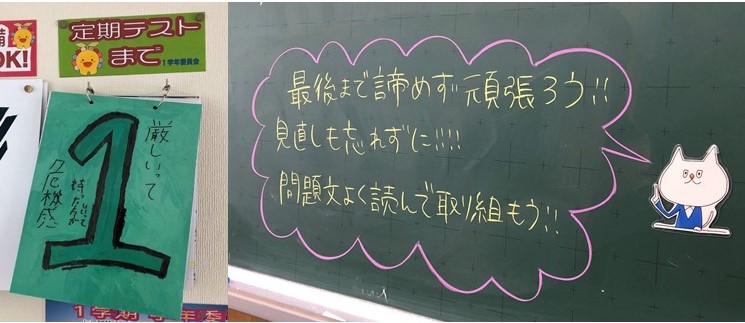 備
OK!
定期テスト
まで
1学年委員会
1
厳しいって
危機感
1学期 学年委
最後まで諦めず頑張ろう!!
見直しも忘れずに!!!!
問題文よく読んで取り組もう!!